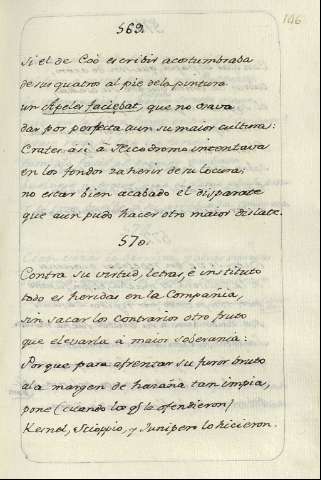 146
569.
Si el de Coò escribir acostumbraba
de sus quatros al pie de la pintura
un Apeles faciebat, que no osava
dar por perfecta aun su maior cultura:
Crates asi â Nicodromo intentava
en los fondos zaherir de su locura;
no estar bien acabado el disparate
que aun pudo hacer otro maior dislate.
570.
Contra su virtud, letras, è instituto
todo es heridas en la Compañia,
sin sacar los contrarios otro fruto
que elevarla à maior soberania:
Porque para afrentar su furor bruto
al a margen de hazaña tan impia,
pone (cuando los q̃ la ofendieron)
Kernel, Scioppio, y Junipero lo hicieron.